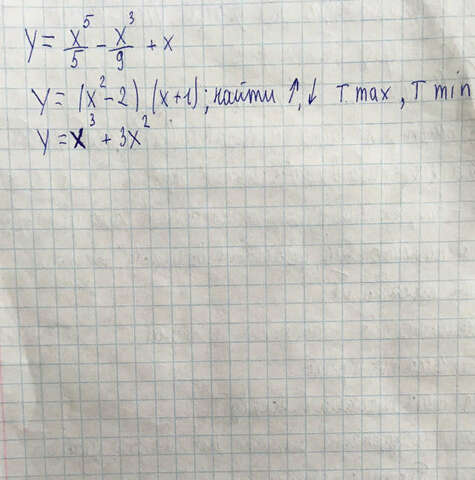 y = x⁵/5 - x³/9 + x
y = (x² - 2) (x + 1); найти ↑, ↓ т max, т min
y = x³ + 3x²